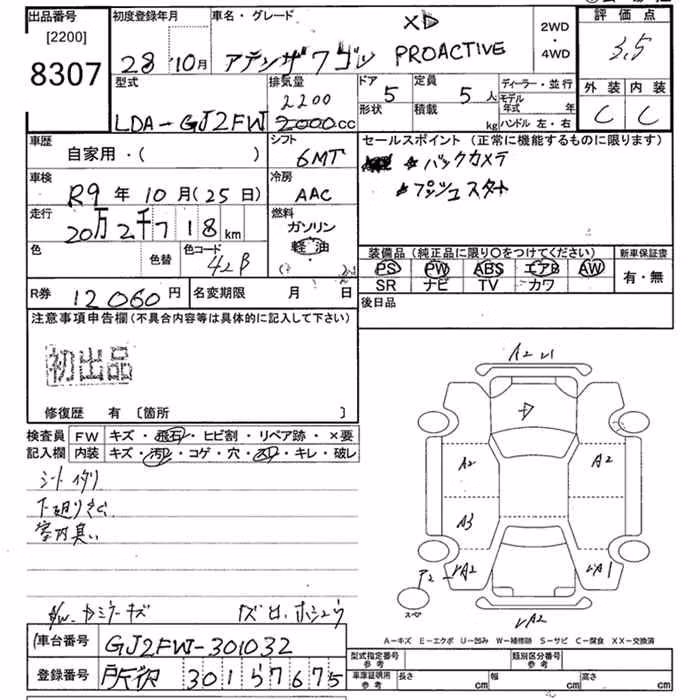 出品番号
[2200]
8307
初度登録年月
28 10月
車名・グレード
XD
アテンザワゴン PROACTIVE
2WD
・
4WD
評価点
3.5
型式
LDA-GJ2FW
排気量
2200
2000cc
ドア
5
形状
定員
5人
積載
kg
ディーラー・並行
モデル年式 年
ハンドル 左・右
外装 内装
C C
車歴
自家用・( )
シフト
6MT
セールスポイント (正常に機能するものに限ります)
バックカメラ
プッシュスタート
車検
R9 年 10 月(25日)
冷房
AAC
走行
20万2千718 km
燃料
ガソリン
軽油
色
色替
色コード
42B
装備品(純正品に限り○をつけてください)
新車保証書
PS PW ABS エアB AW
SR ナビ TV カワ
有・無
R券 12060円
名変期限 月 日
後日品
注意事項申告欄(不具合内容等は具体的に記入して下さい)
初出品
修復歴 有 〔箇所 〕
検査員
記入欄
FW キズ・飛石・ヒビ割・リペア跡・×要
内装 キズ・汚れ・コゲ・穴・スレ・キレ・破レ
シートイタリ
下廻りさび
室内臭い
A2
A2
A3
A2
A1
A2
A-キズ E-エクボ U-凹み W-補修跡 S-サビ C-腐食 XX-交換済
車台番号
GJ2FW-301032
登録番号
所沢 301 5 7675
型式指定番号
参考
類別区分番号
参考
車庫証明用
参考
長さ cm
幅 cm
高さ cm